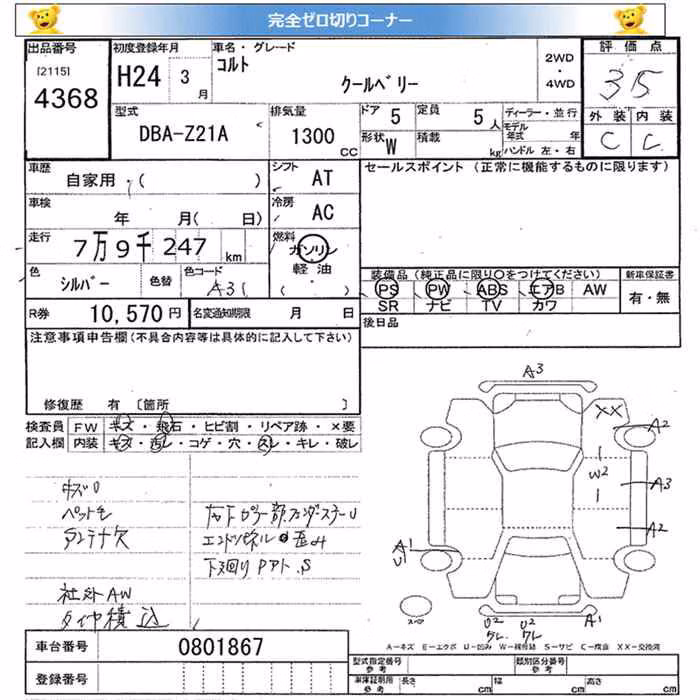 完全ゼロ切りコーナー
出品番号
[2115]
4368
初度登録年月
H24 3月
車名・グレード
コルト
クールベリー
2WD
・
4WD
評価点
3.5
外装 内装
C C
型式
DBA-Z21A
排気量
1300
CC
ドア 5
定員 5人
形状 W
積載 kg
ディーラー・並行
モデル年式 年
ハンドル 左・右
車歴
自家用・( )
シフト
AT
セールスポイント (正常に機能するものに限ります)
車検
年 月( 日)
冷房
AC
走行
7万9千247 km
燃料
ガソリン
軽油
( )
色
シルバー
色替
色コード
A31
装備品(純正品に限り○をつけてください)
PS PW ABS エアB AW
SR ナビ TV カワ
新車保証書
有・無
R券 10,570円
名変通知期限 月 日
後日品
注意事項申告欄(不具合内容等は具体的に記入して下さい)
修復歴 有 [箇所 ]
検査員
記入欄
FW キズ・飛石・ヒビ割・リペア跡・×要
内装 キズ・汚レ・コゲ・穴・スレ・キレ・破レ
ペット毛
アンテナ欠
エンドパネル 歪み
下廻り S
社外AW
タイヤ積込
A3
XX
A2
W2
A3
A2
A1
U1
スペア
U2
クレ
U2
クレ
A1
A=キズ E=エクボ U=凹み W=補修跡 S=サビ C=腐食 XX=交換済
車台番号 0801867
登録番号
型式指定番号
参考
類別区分番号
参考
車庫証明用
参考
長さ cm
幅 cm
高さ cm